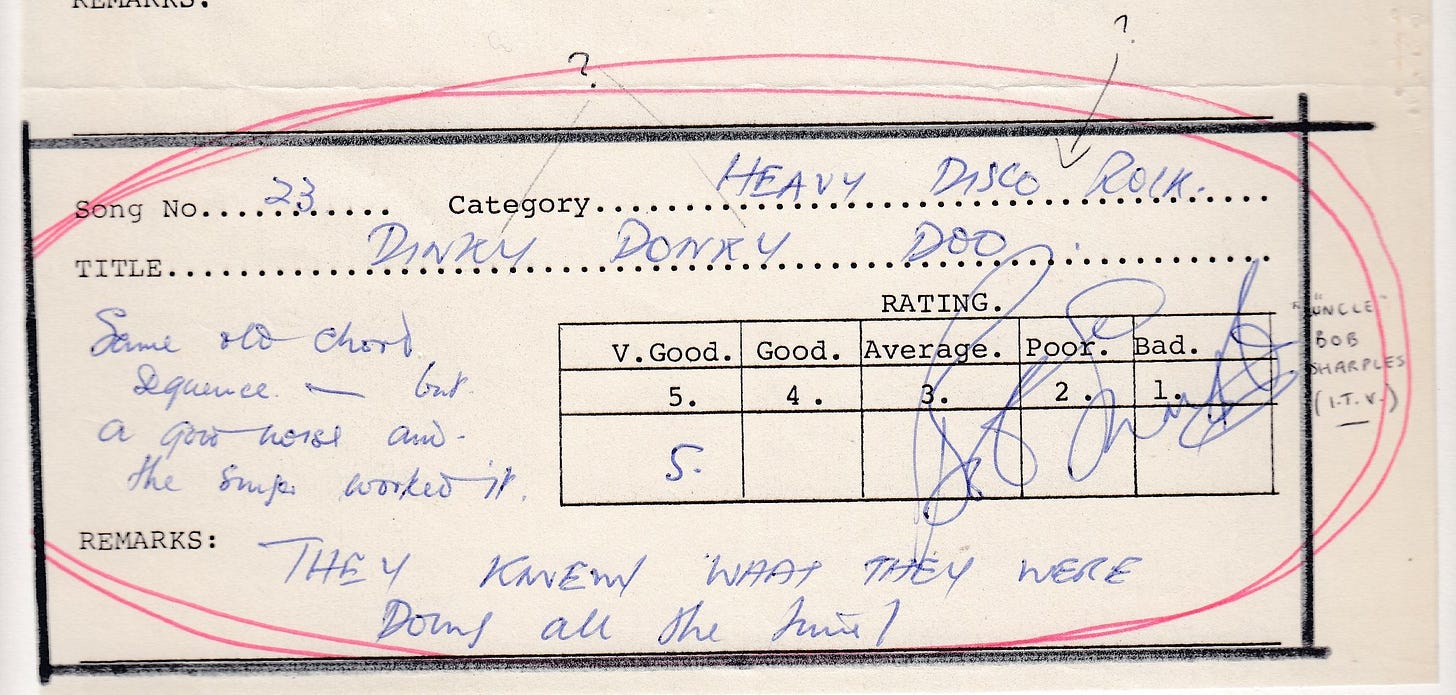 REMARKS:
?
?
Song No....23.... Category....HEAVY DISCO ROCK....
TITLE....DINKY DONKY DOO....
RATING.
V.Good. Good. Average. Poor. Bad.
5. 4. 3. 2. 1.
5.
Same old chord
sequence — but
a good noise and
the singer worked it.
"UNCLE"
BOB
SHARPLES
(I.T.V.)
REMARKS: THEY KNEW WHAT THEY WERE
Doing all the time!